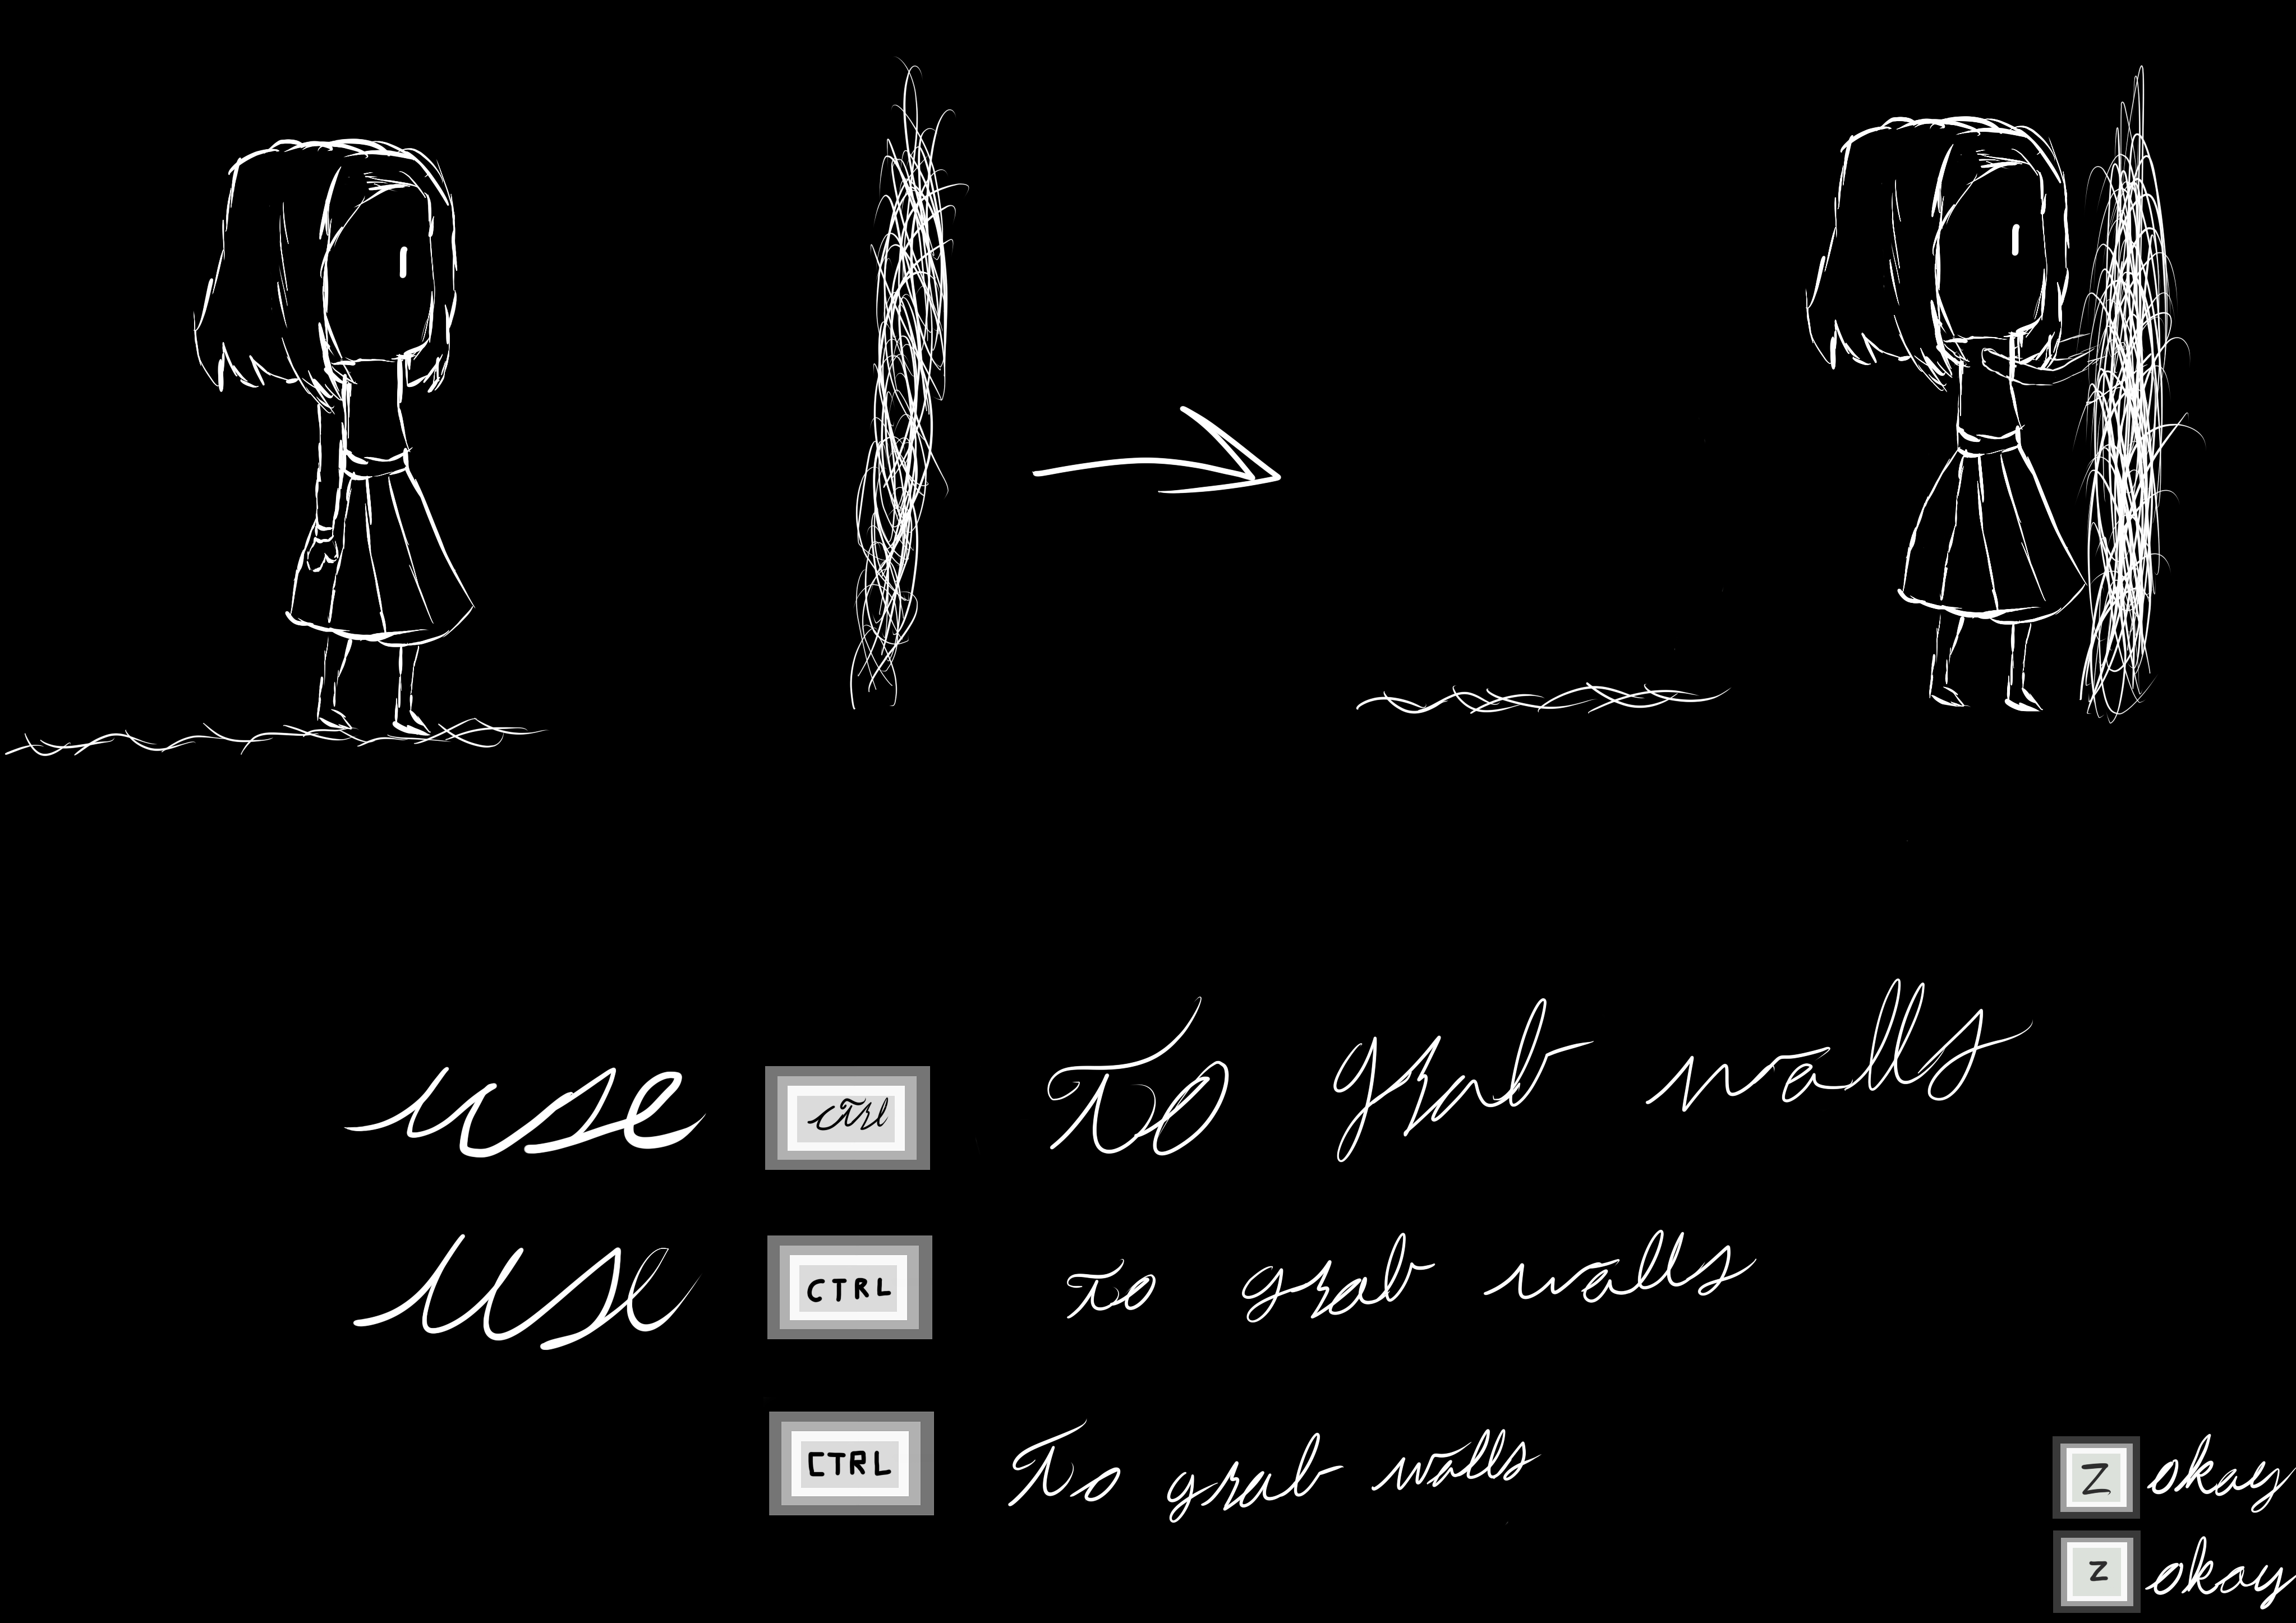 use ctrl To grab walls
use CTRL to grab walls
CTRL To grab walls
Z okay
z okay